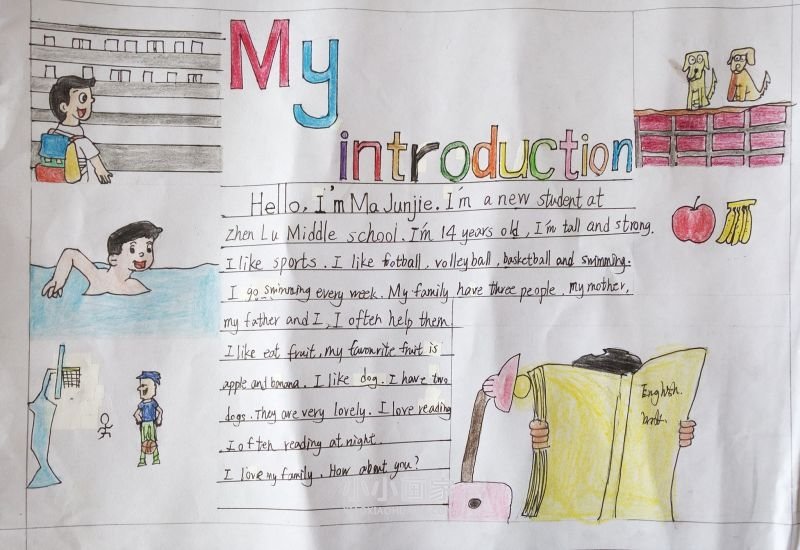 My
introduction
Hello, I'm Ma Junjie. I'm a new student at
Zhen Lu Middle school. I'm 14 years old, I'm tall and strong.
I like sports. I like football, volleyball, basketball and swimming.
I go swimming every week. My family have three people, my mother,
my father and I, I often help them.
I like eat fruit, my favourite fruit is
apple and banana. I like dog. I have two
dogs. They are very lovely. I love reading
I often reading at night.
I love my family. How about you?
English.
小小画家